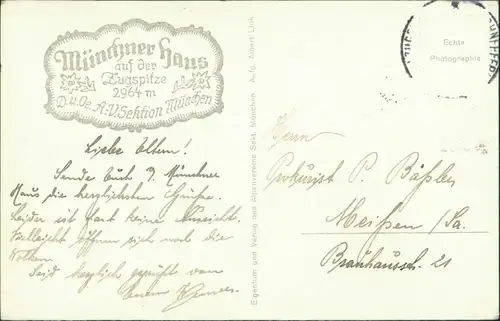 Münchner Haus
auf der
Zugspitze
2964 m
D. u. Oe. A.-V. Sektion München
Liebe Eltern!
Sende Euch v. Münchner
Haus die herzlichsten Grüße.
Leider ist fast keine Aussicht.
Vielleicht öffnen sich noch die
Wolken.
Seid herzlich gegrüßt von
Eurem
Eigentum und Verlag der Alpenvereins Sekt. München. Aufg. Albert Link
Echte
Photographie
Herrn
Prokurist P. Bäßler
Meißen /Sa.
Brauhaussstr. 21